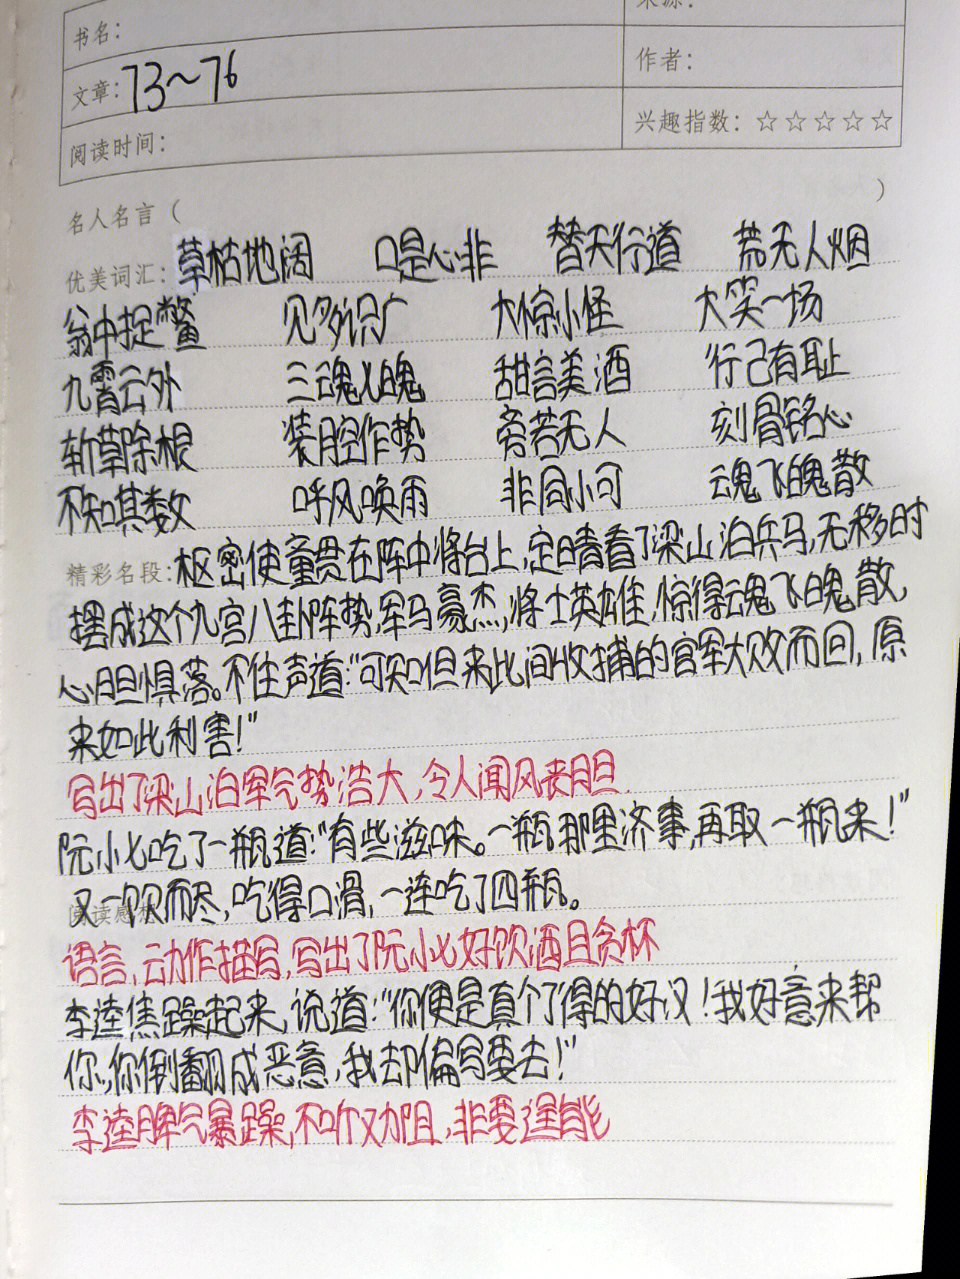 书名：
文章：73~76
作者：
阅读时间：
兴趣指数：☆☆☆☆☆
名人名言（ ）
优美词汇：草枯地阔 口是心非 替天行道 荒无人烟
翁中捉鳖 见多识广 大惊小怪 大笑一场
九霄云外 三魂七魄 甜言美酒 行己有耻
斩草除根 装腔作势 旁若无人 刻骨铭心
不知其数 呼风唤雨 非同小可 魂飞魄散
精彩名段：枢密使童贯在阵中将台上，定睛看了梁山泊兵马，无移时
摆成这个九宫八卦阵势，军马豪杰，将士英雄，惊得魂飞魄散，
心胆惧落。不住声道：“可知但来此间收捕的官军大败而回，原
来如此利害！”
写出了梁山泊军气势浩大，令人闻风丧胆.
阮小七吃了一瓶道：“有些滋味。一瓶那里济事，再取一瓶来！”
又一饮而尽，吃得口滑，一连吃了四瓶。
阅读感想
语言，动作描写，写出了阮小七好饮酒且贪杯
李逵焦躁起来，说道：“你便是真个了得的好汉！我好意来帮
你，你倒翻成恶意，我却偏写要去！”
李逵脾气暴躁，不听劝阻，非要逞能